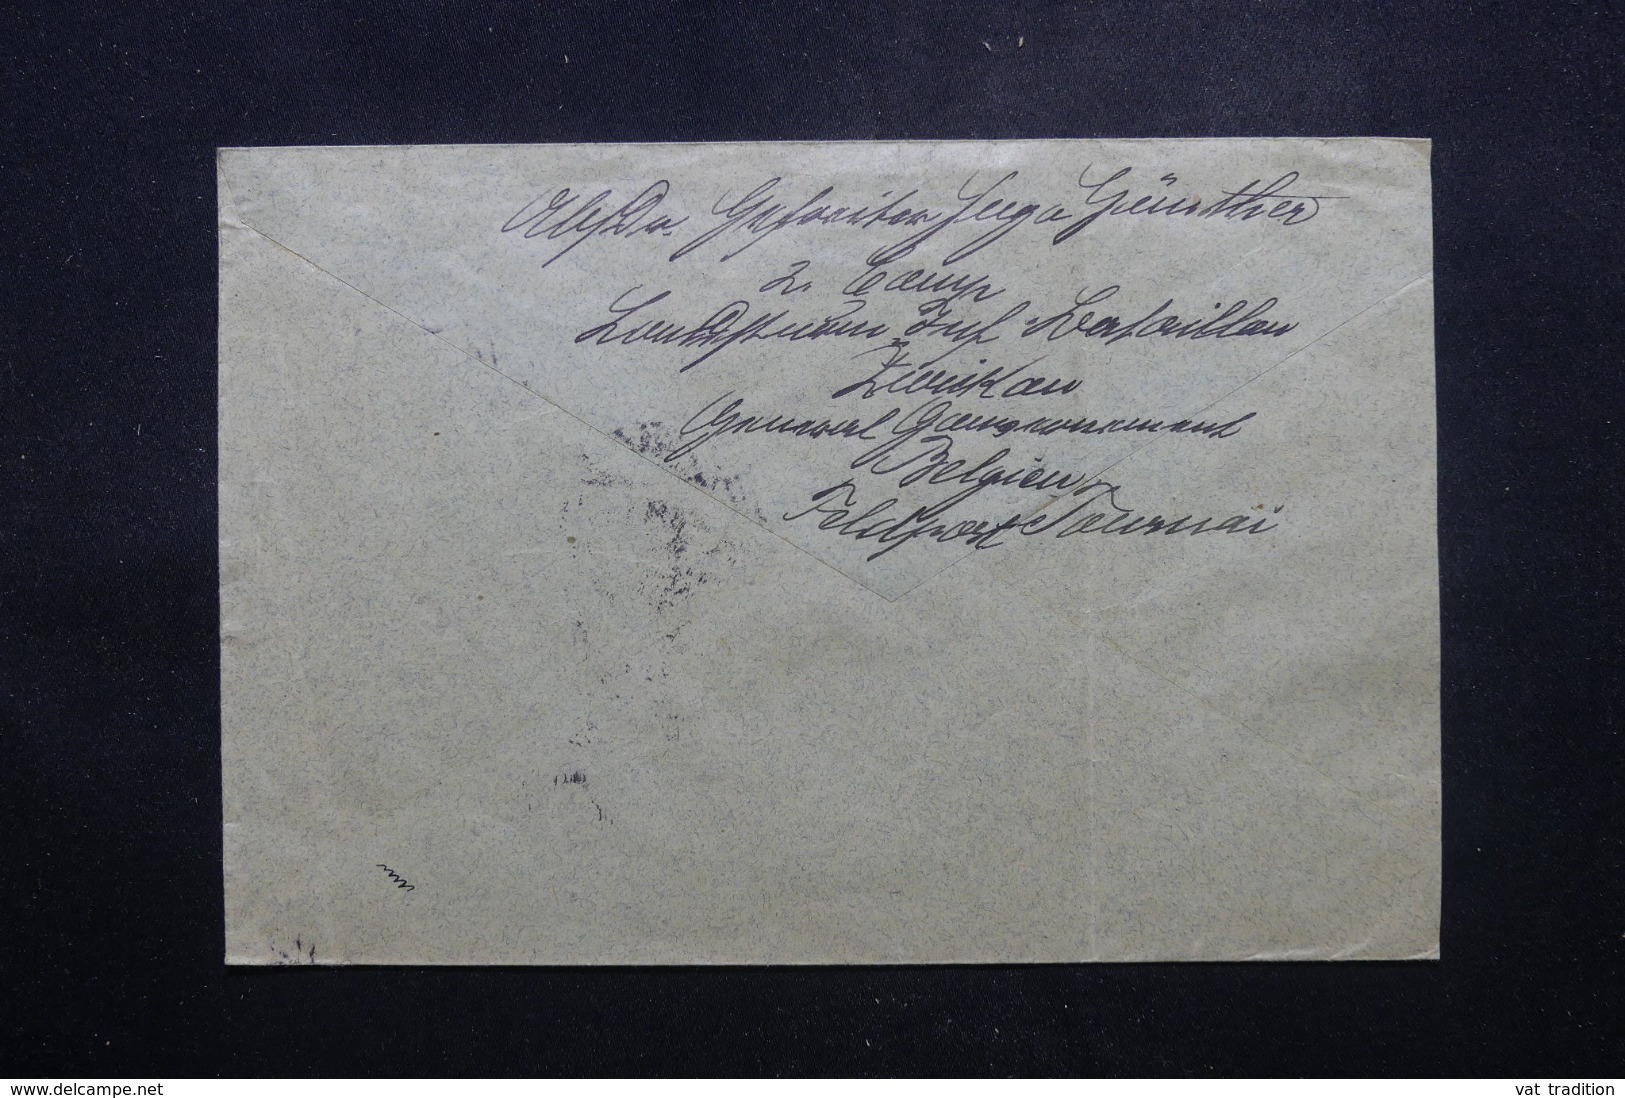 Absdr. Gefreiter Hugo Günther
2. Comp
Landsturm Inf. Bataillon
Zwickau
General Gouvernement
Belgien
Feldpost Tournai
www.delcampe.net
vat tradition